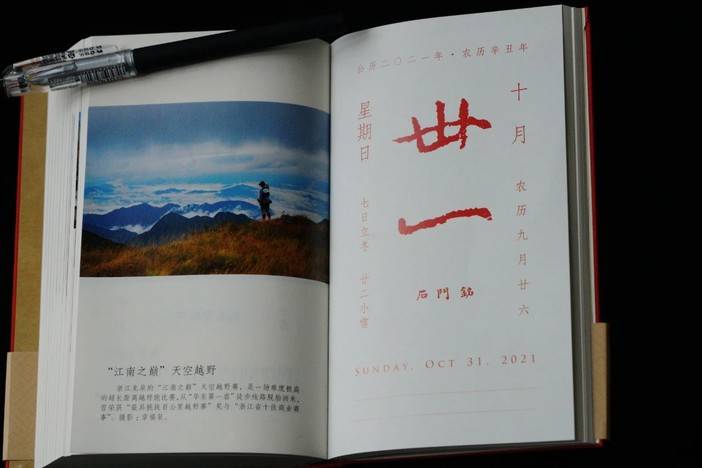 “江南之巅”天空越野
浙江龙泉的“江南之巅”天空越野赛，是一场难度极高
的超长距离越野跑比赛，从“华东第一宿”徒步线路脱胎而来，
曾荣获“最具挑战百公里越野赛”奖与“浙江省十佳商业赛
事”。摄影：章福泉。
公历二〇二一年·农历辛丑年
十月
农历九月廿六
卅一
石門銘
星期日
七日立冬 廿二小雪
SUNDAY, OCT 31, 2021